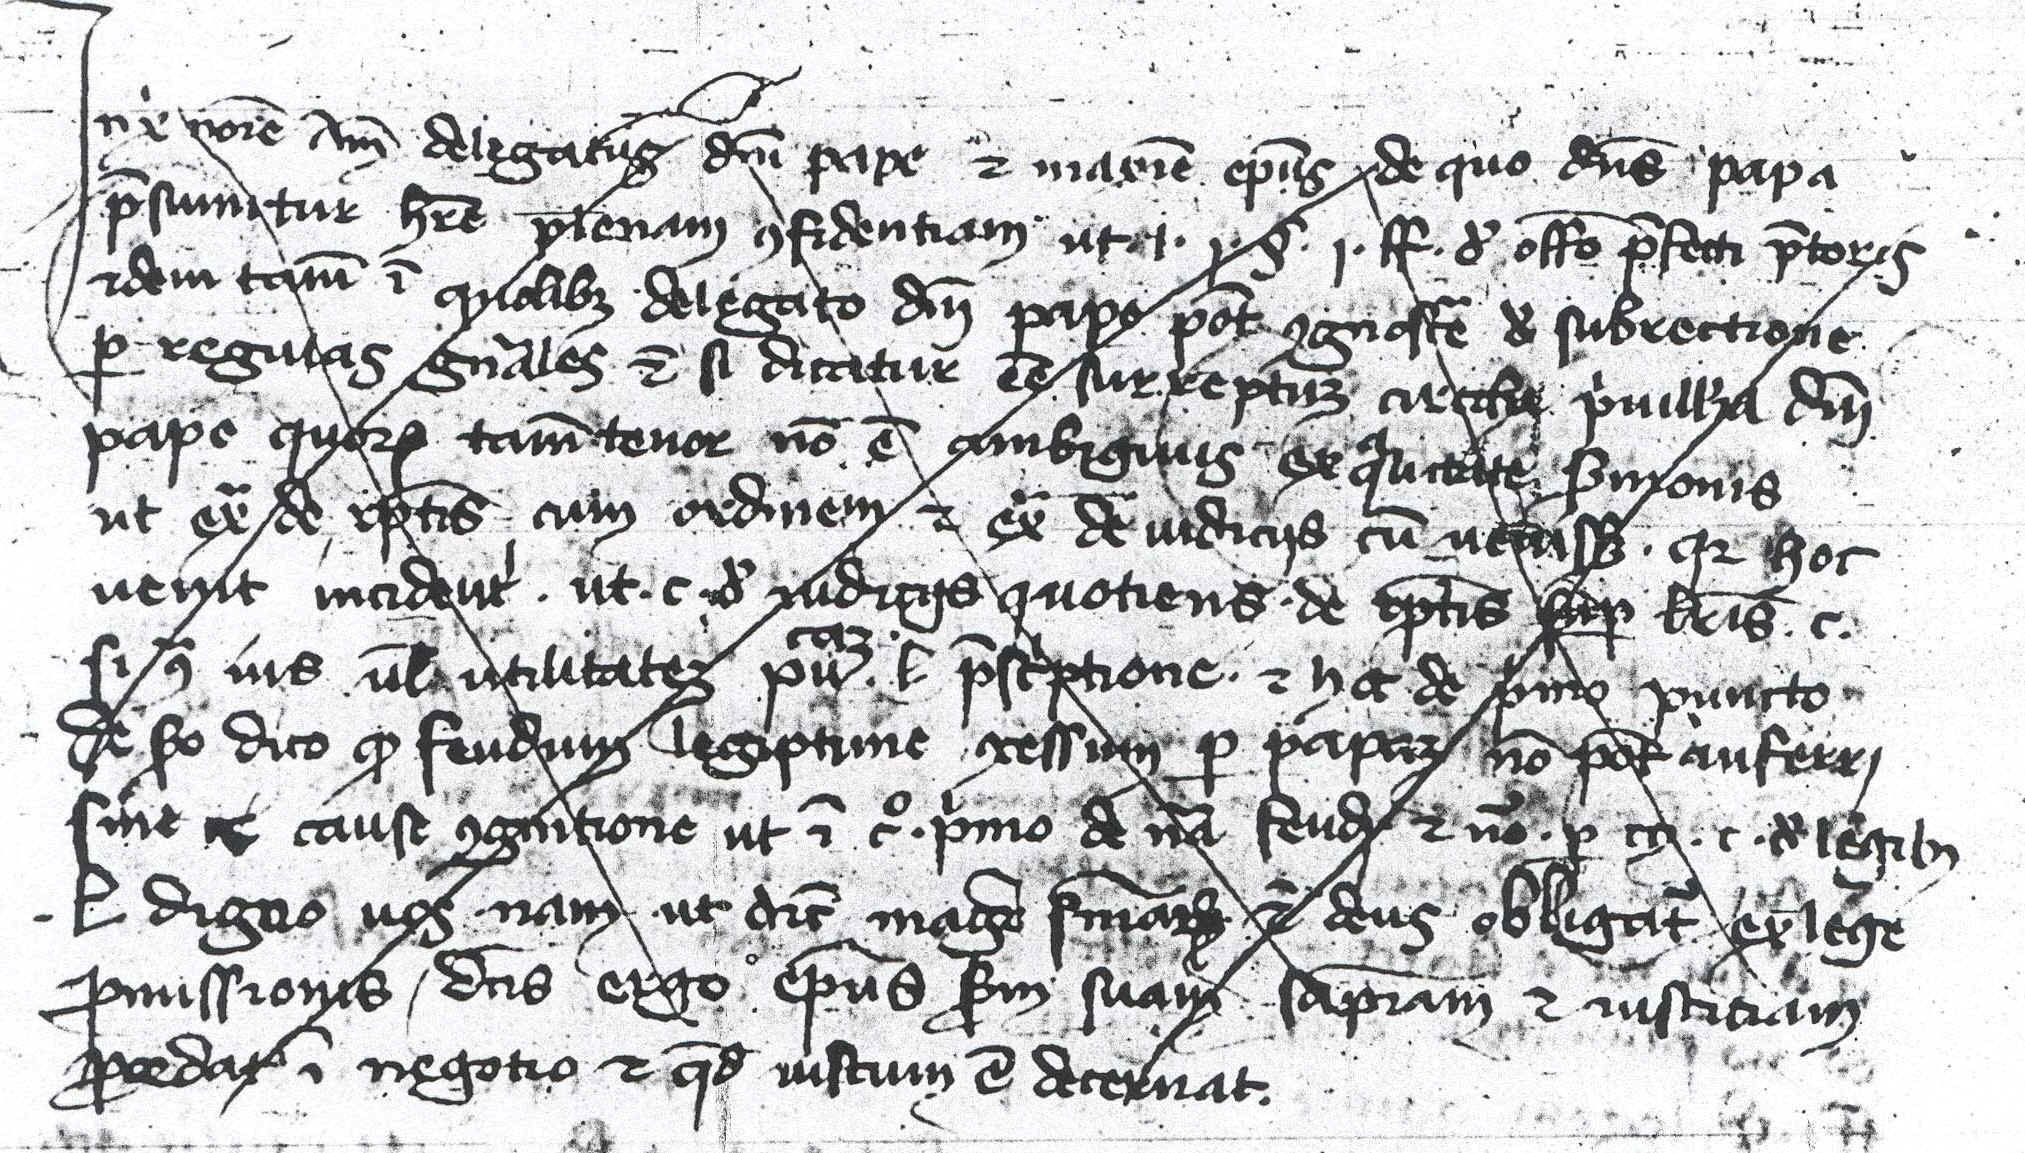 delegatus dni pape et maxie epus de quo dns papa
psumitur hre plenam 9fidentiam ut l. j. §. j. ff. de offo pfecti ptoris
idem tam i quolibz delegato dni pape pot 9gnosce de subreptione
p regulas gnales et si dicatur ee surreptuz circa puillia dni
pape quor tam tenor no e ambiguus ex qlitate smonis
ut ex de rptis cum ordinem et ex de iudiciis cu venissz. qr hoc
venit incident. ut. c. de iudiciis quotiens. de rptis sep lris. c.
si 9 ius ul utilitatez pu caz. l pscptione. et h de pmo puncto
de so dico q feudum legiptime 9cessum p papaz no pot auferri
sine cause 9gnitione ut i co. pmo de na feudi et no. p cy. c. de legibus
l digna vox nam ut dic magr smaz. et deus obligat ex lege
pmissionis dcus ergo epus sm suam sapiam et iusticiam
pcedat i negotio et qd iustum e decernat.